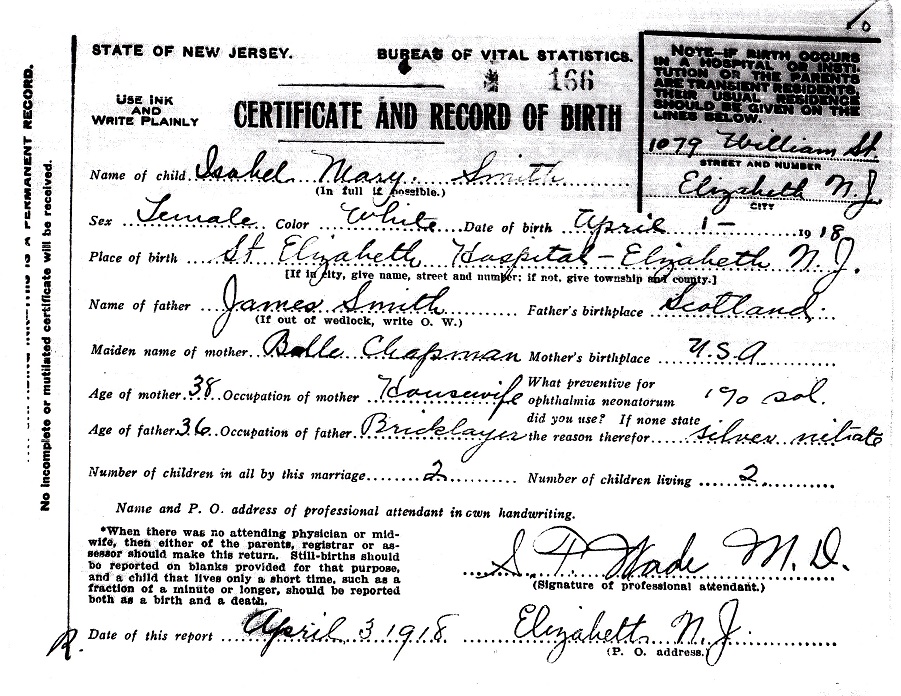 STATE OF NEW JERSEY. BUREAU OF VITAL STATISTICS.
166
USE INK
AND
WRITE PLAINLY
CERTIFICATE AND RECORD OF BIRTH
NOTE—IF BIRTH OCCURS
IN A HOSPITAL OR INSTI-
TUTION OR THE PARENTS
ARE TRANSIENT RESIDENTS,
THEIR USUAL RESIDENCE
SHOULD BE GIVEN ON THE
LINES BELOW.
1079 William St.
STREET AND NUMBER
Elizabeth N.J.
CITY
Name of child Isabel Mary Smith
(In full if possible.)
Sex Female Color White Date of birth April 1- 1918
Place of birth St Elizabeth Hospital - Elizabeth N.J.
[If in city, give name, street and number; if not, give township and county.]
Name of father James Smith Father's birthplace Scotland
(If out of wedlock, write O. W.)
Maiden name of mother Belle Chapman Mother's birthplace U.S.A
Age of mother 38 Occupation of mother Housewife What preventive for
ophthalmia neonatorum 1% sol.
did you use? If none state
Age of father 36 Occupation of father Bricklayer the reason therefor silver nitrate
Number of children in all by this marriage 2 Number of children living 2
Name and P. O. address of professional attendant in own handwriting.
*When there was no attending physician or mid-
wife, then either of the parents, registrar or as-
sessor should make this return. Still-births should
be reported on blanks provided for that purpose,
and a child that lives only a short time, such as a
fraction of a minute or longer, should be reported
both as a birth and a death.
S. T. Wade M.D.
(Signature of professional attendant.)
Date of this report April 3 1918 Elizabeth N.J.
(P. O. address.)
R.
IS A PERMANENT RECORD.
No incomplete or mutilated certificate will be received.